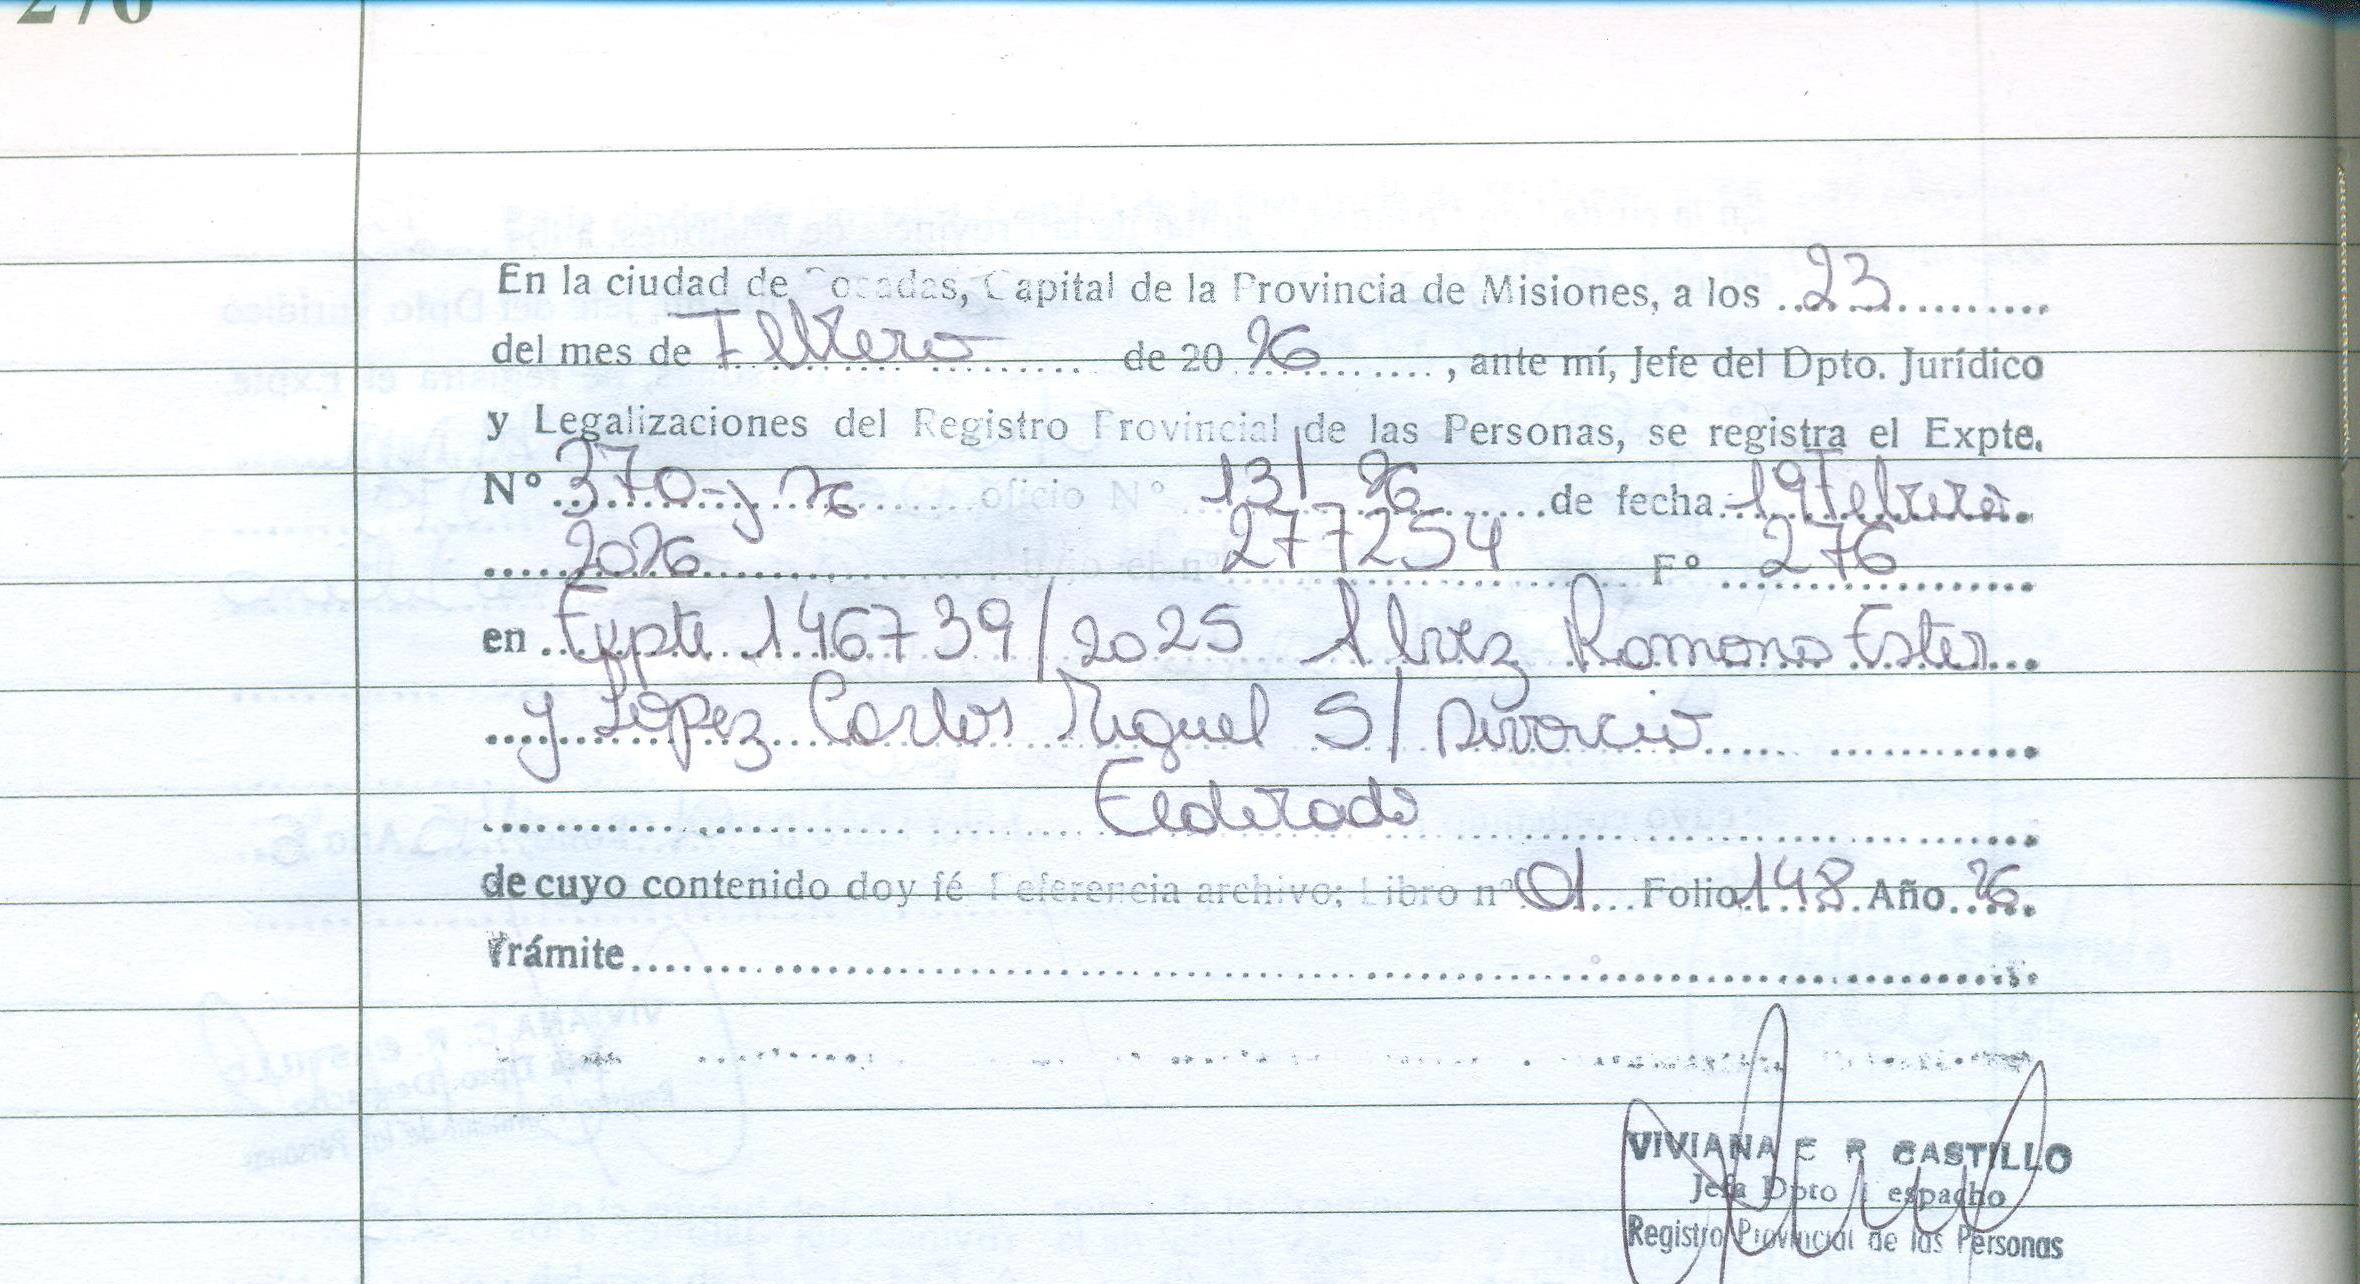 276
En la ciudad de Posadas, Capital de la Provincia de Misiones, a los 23
del mes de Febrero de 20 26, ante mí, Jefe del Dpto. Jurídico
y Legalizaciones del Registro Provincial de las Personas, se registra el Expte.
N° 370-y 26 oficio N° 13/26 de fecha 19 Febrero
2026 bajo el n° 277254 F° 276
en Expte 146739/2025 Alvez Ramona Ester
y López Carlos Miguel S/ Divorcio
Eldorado
de cuyo contenido doy fé Referencia archivo; Libro n° 01 Folio 148 Año 26
Trámite
VIVIANA E R CASTILLO
Jefa Dpto Despacho
Registro Provincial de las Personas